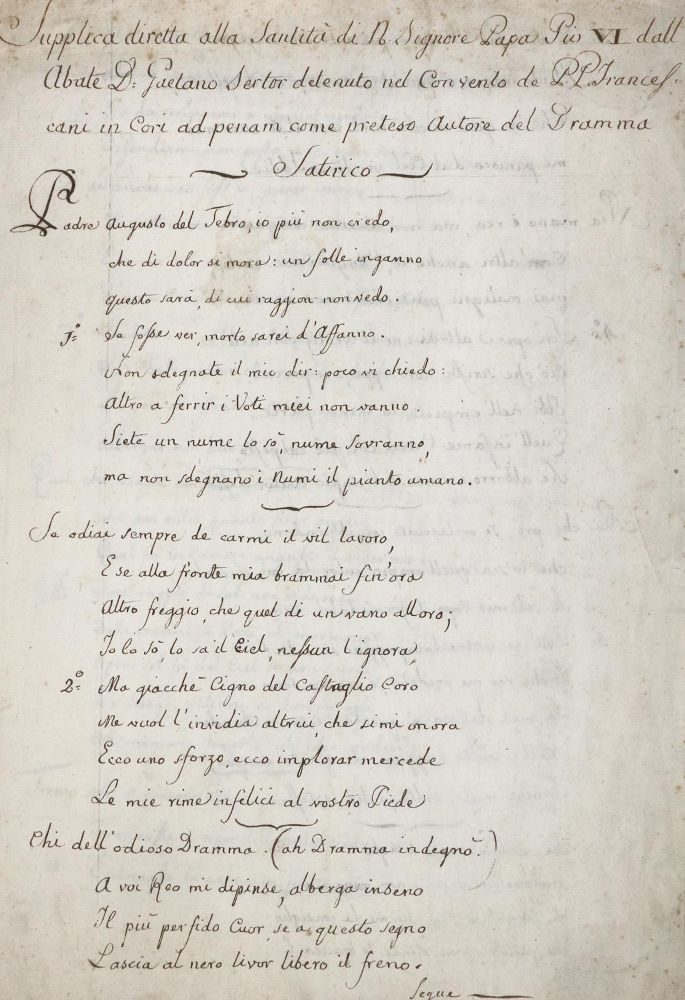 Supplica diretta alla Santità di N. Signore Papa Pio VI dall
Abate D: Gaetano Sertor detenuto nel Convento de P.P. Frances=
cani in Cori ad penam come preteso Autore del Dramma
Satirico
Padre Augusto del Tebro, io più non credo,
che di dolor si mora: un folle inganno
questo sarà, di cui raggion non vedo.
1º Se fosse ver, morto sarei d'Affanno.
Non sdegnate il mio dir: poco vi chiedo:
Altro a ferrir i Voti miei non vanno.
Siete un nume lo sò, nume sovranno,
ma non sdegnano i Numi il pianto umano.
Se odiai sempre de carmi il vil lavoro,
E se alla fronte mia brammai fin'ora
Altro freggio, che quel di un vano alloro;
Io lo sò, lo sa il Ciel, nessun l'ignora,
2º Ma giacchè Cigno del Castaglio Coro
Me vuol l'invidia altrui, che si mi onora
Ecco uno sforzo, ecco implorar mercede
Le mie rime infelici al vostro Piede
Chi dell'odioso Dramma. (ah Dramma indegno.)
A voi Reo mi dipinse, alberga in seno
Il più perfido Cuor, se a questo segno
Lascia al nero livor libero il freno.
Segue